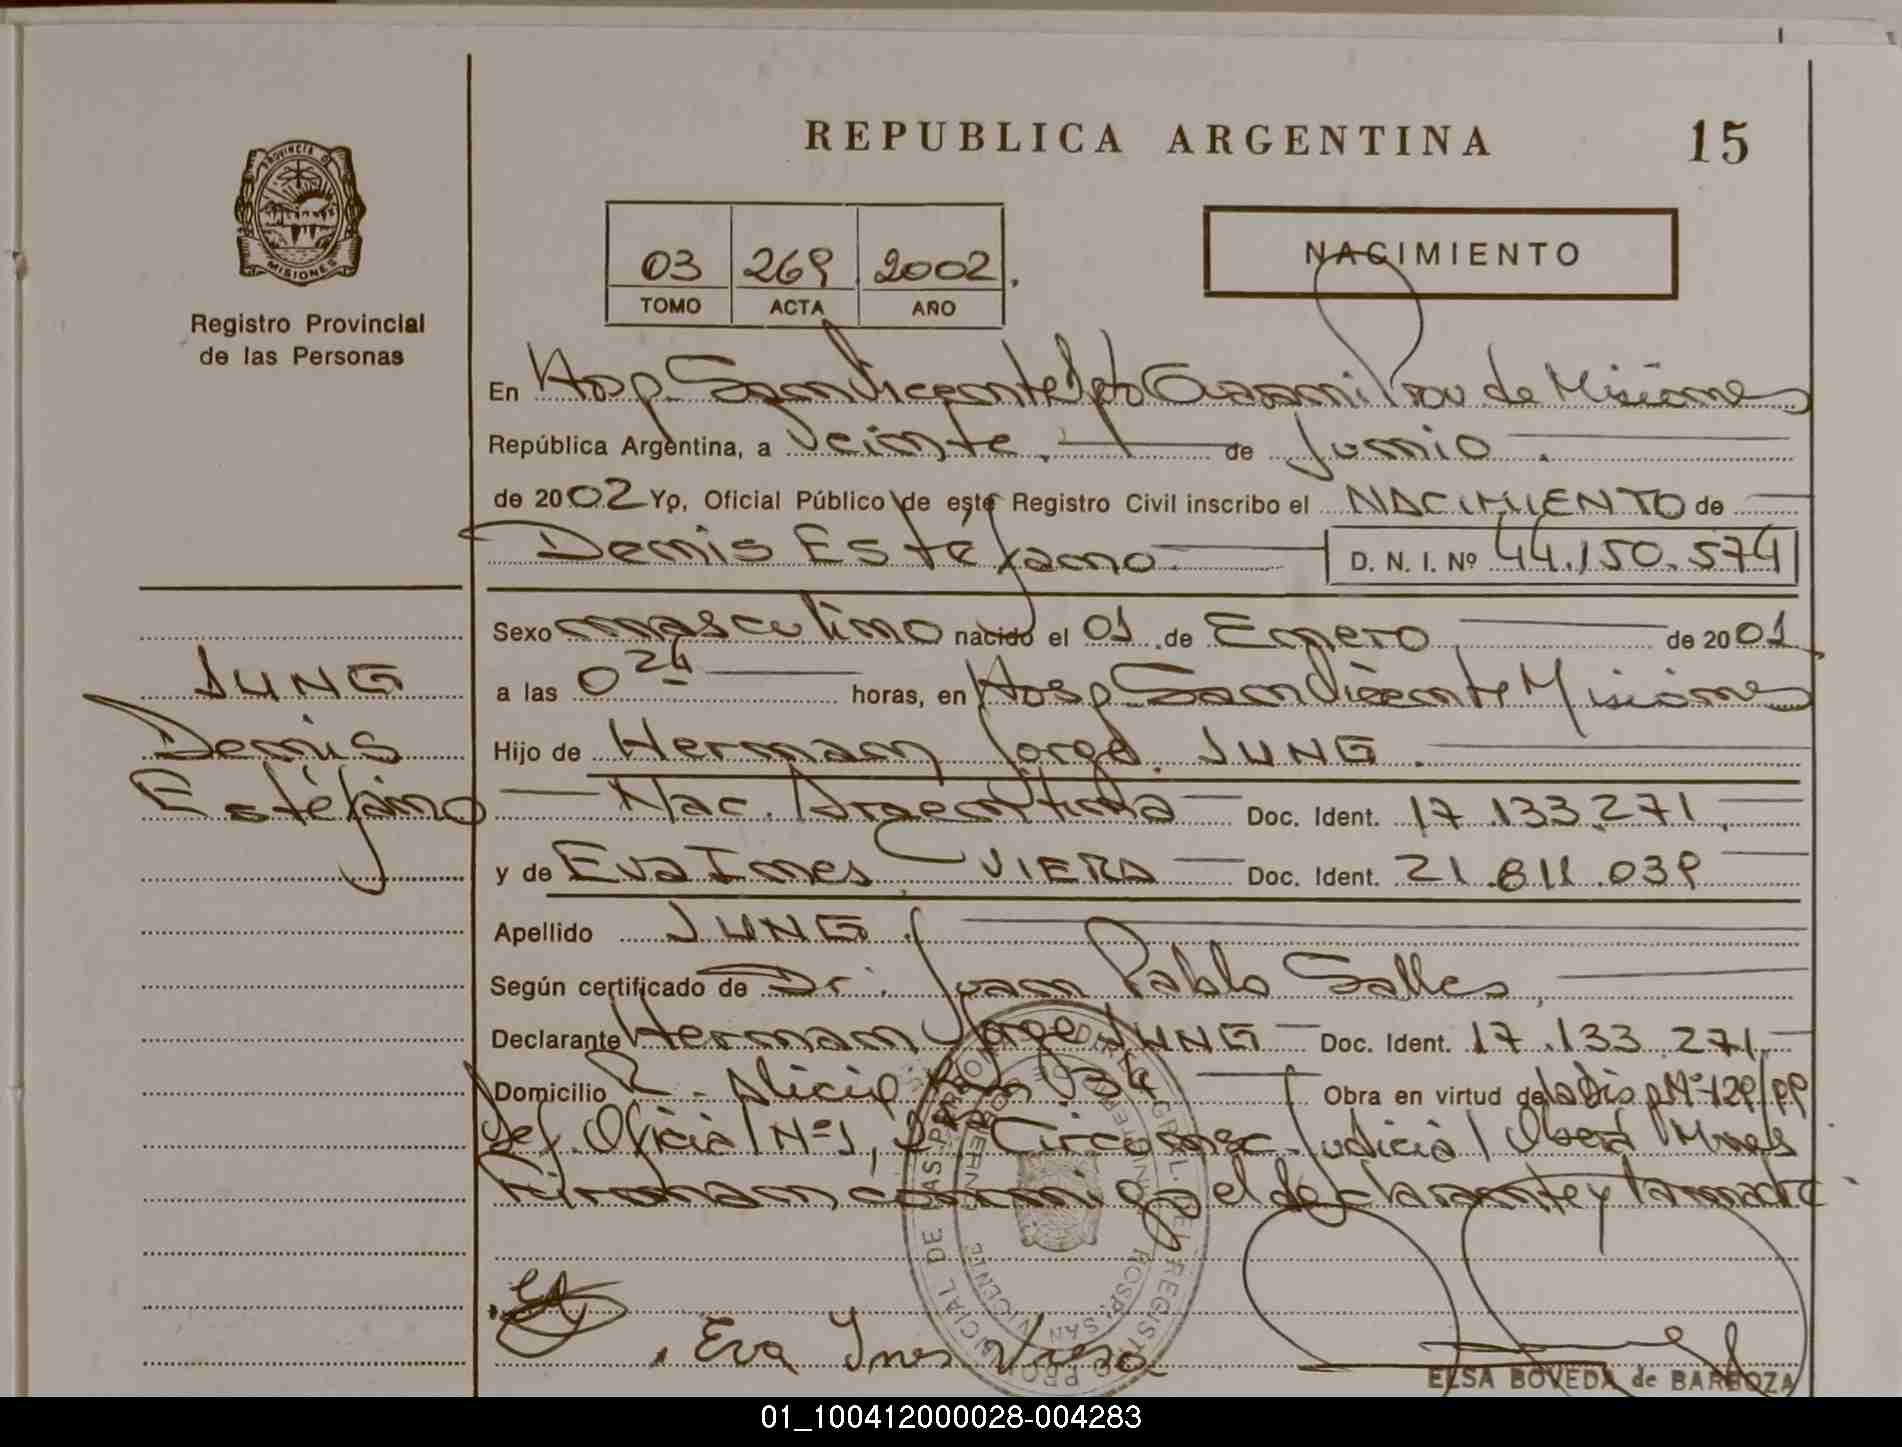 REPUBLICA ARGENTINA 15
PROVINCIA DE
MISIONES
Registro Provincial
de las Personas
03 269 2002
TOMO ACTA AÑO
NACIMIENTO
En Hosp. San Vicente Dpto Guaraní Prov de Misiones
República Argentina, a veinte. de Junio.
de 2002 Yo, Oficial Público de este Registro Civil inscribo el NACIMIENTO de
Denis Estéfano D. N. I. Nº 44.150.574
Sexo masculino nacido el 01 de Enero de 2001
JUNG
a las 0 24 horas, en Hosp San Vicente Misiones
Denis
Hijo de Hernan Jorge JUNG.
Estéfano
Nac. Argentina Doc. Ident. 17.133.271
y de Eva Ines VIERA Doc. Ident. 21.811.039
Apellido JUNG.
Según certificado de Dr. Juan Pablo Salles,
Declarante Hernan Jorge JUNG Doc. Ident. 17.133.271
Domicilio R. Alicia Km 34 Obra en virtud de la Dis pNº 129/99
Def. Oficial Nº 1, 2da Circonsc. Judicial Oberá Mnes
Firman conmigo el declarante y la madre
Eva Ines Viera
ELSA BOVEDA de BARBOZA
01_100412000028-004283